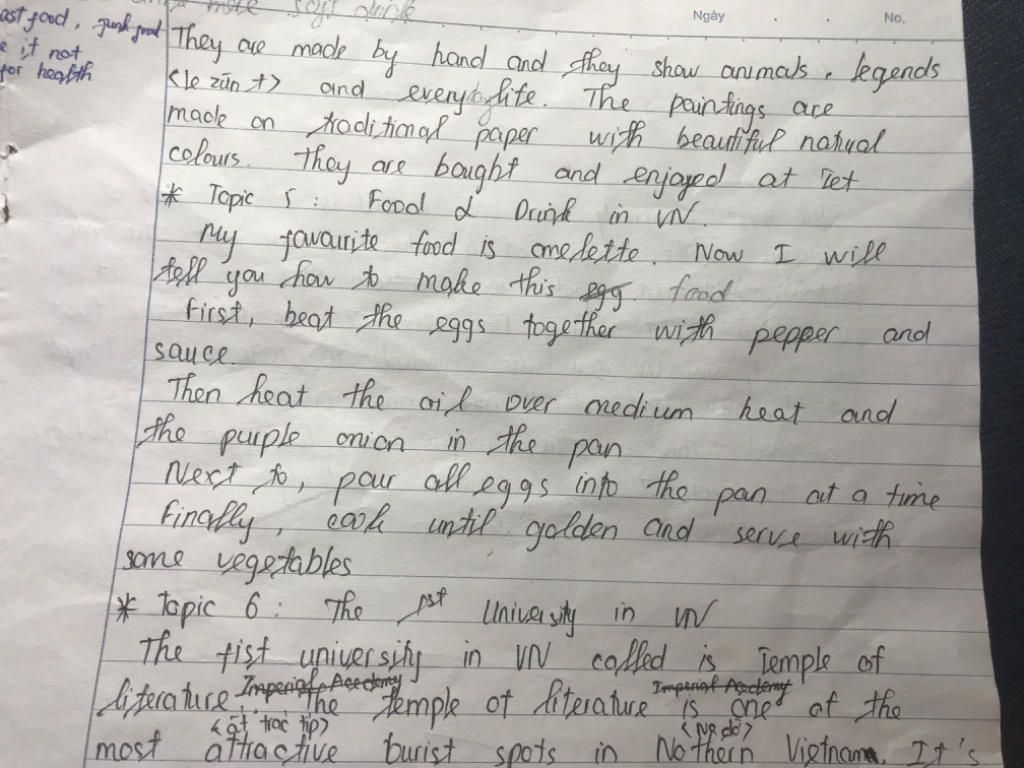 more soft drink
Ngày No.
ast food, junk food
e it not
for health
They are made by hand and they show animals, legends
<le zần t> and everyday life. The paintings are
made on traditional paper with beautiful natural
colours. They are bought and enjoyed at Tet
* Topic 5: Food & Drink in VN.
My favourite food is omelette. Now I will
tell you how to make this egg food
First, beat the eggs together with pepper and
sauce
Then heat the oil over medium heat and
the purple onion in the pan
Next to, pour all eggs into the pan at a time
Finally, cook until golden and serve with
some vegetables
* Topic 6: The 1st University in VN
The fist university in VN called is Temple of
Imperial Academy Imperial Academy
literature. The temple of literature is one of the
<ắt trac tip> <No dờ>
most attractive turist spots in Nothern Vietnam. It's